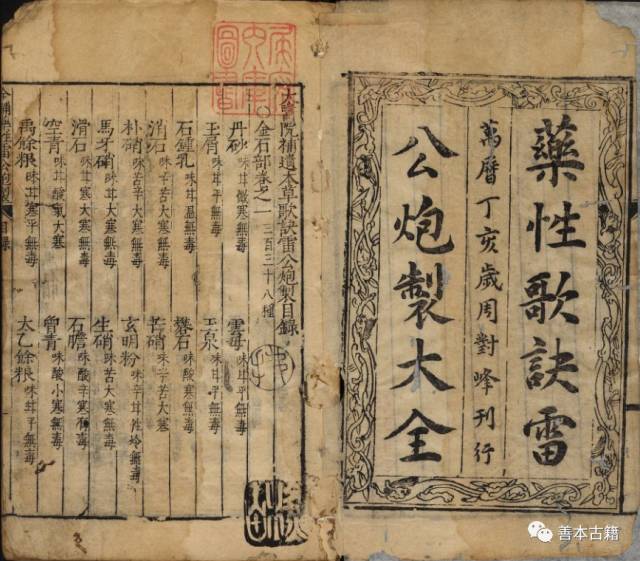 藥性歌訣雷
萬曆丁亥歲周對峰刊行
公炮製大全
太醫院補遺本草歌訣雷公炮製目錄
金石部卷之一 三百三十八種
丹砂 味甘微寒無毒
雲母 味甘平無毒
玉屑 味甘平無毒
玉泉 味甘平無毒
石鍾乳 味甘溫無毒
礬石 味酸寒無毒
消石 味辛苦大寒無毒
芒硝 味辛苦大寒
朴硝 味苦辛大寒無毒
玄明粉 味辛甘性冷無毒
馬牙硝 味甘大寒無毒
生硝 味苦大寒無毒
滑石 味甘寒大寒無毒
石膽 味酸辛寒有毒
空青 味甘酸寒大寒
曾青 味酸小寒無毒
禹餘粮 味甘寒平無毒
太乙餘粮 味甘平無毒
目錄
善本古籍